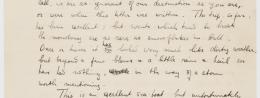 tell, is as ignorant of our destination as you are,
or were when this letter was written. The trip, so far,
has been excellent & but winds which build us about
the monotony are as rare as snowflakes in hell.
Once or twice it has looked very much like dirty weather
but beyond a few blows & a little rain & hail we
have had nothing in the way of a storm
worth mentioning.
This is an excellent sea boat but unfortunately